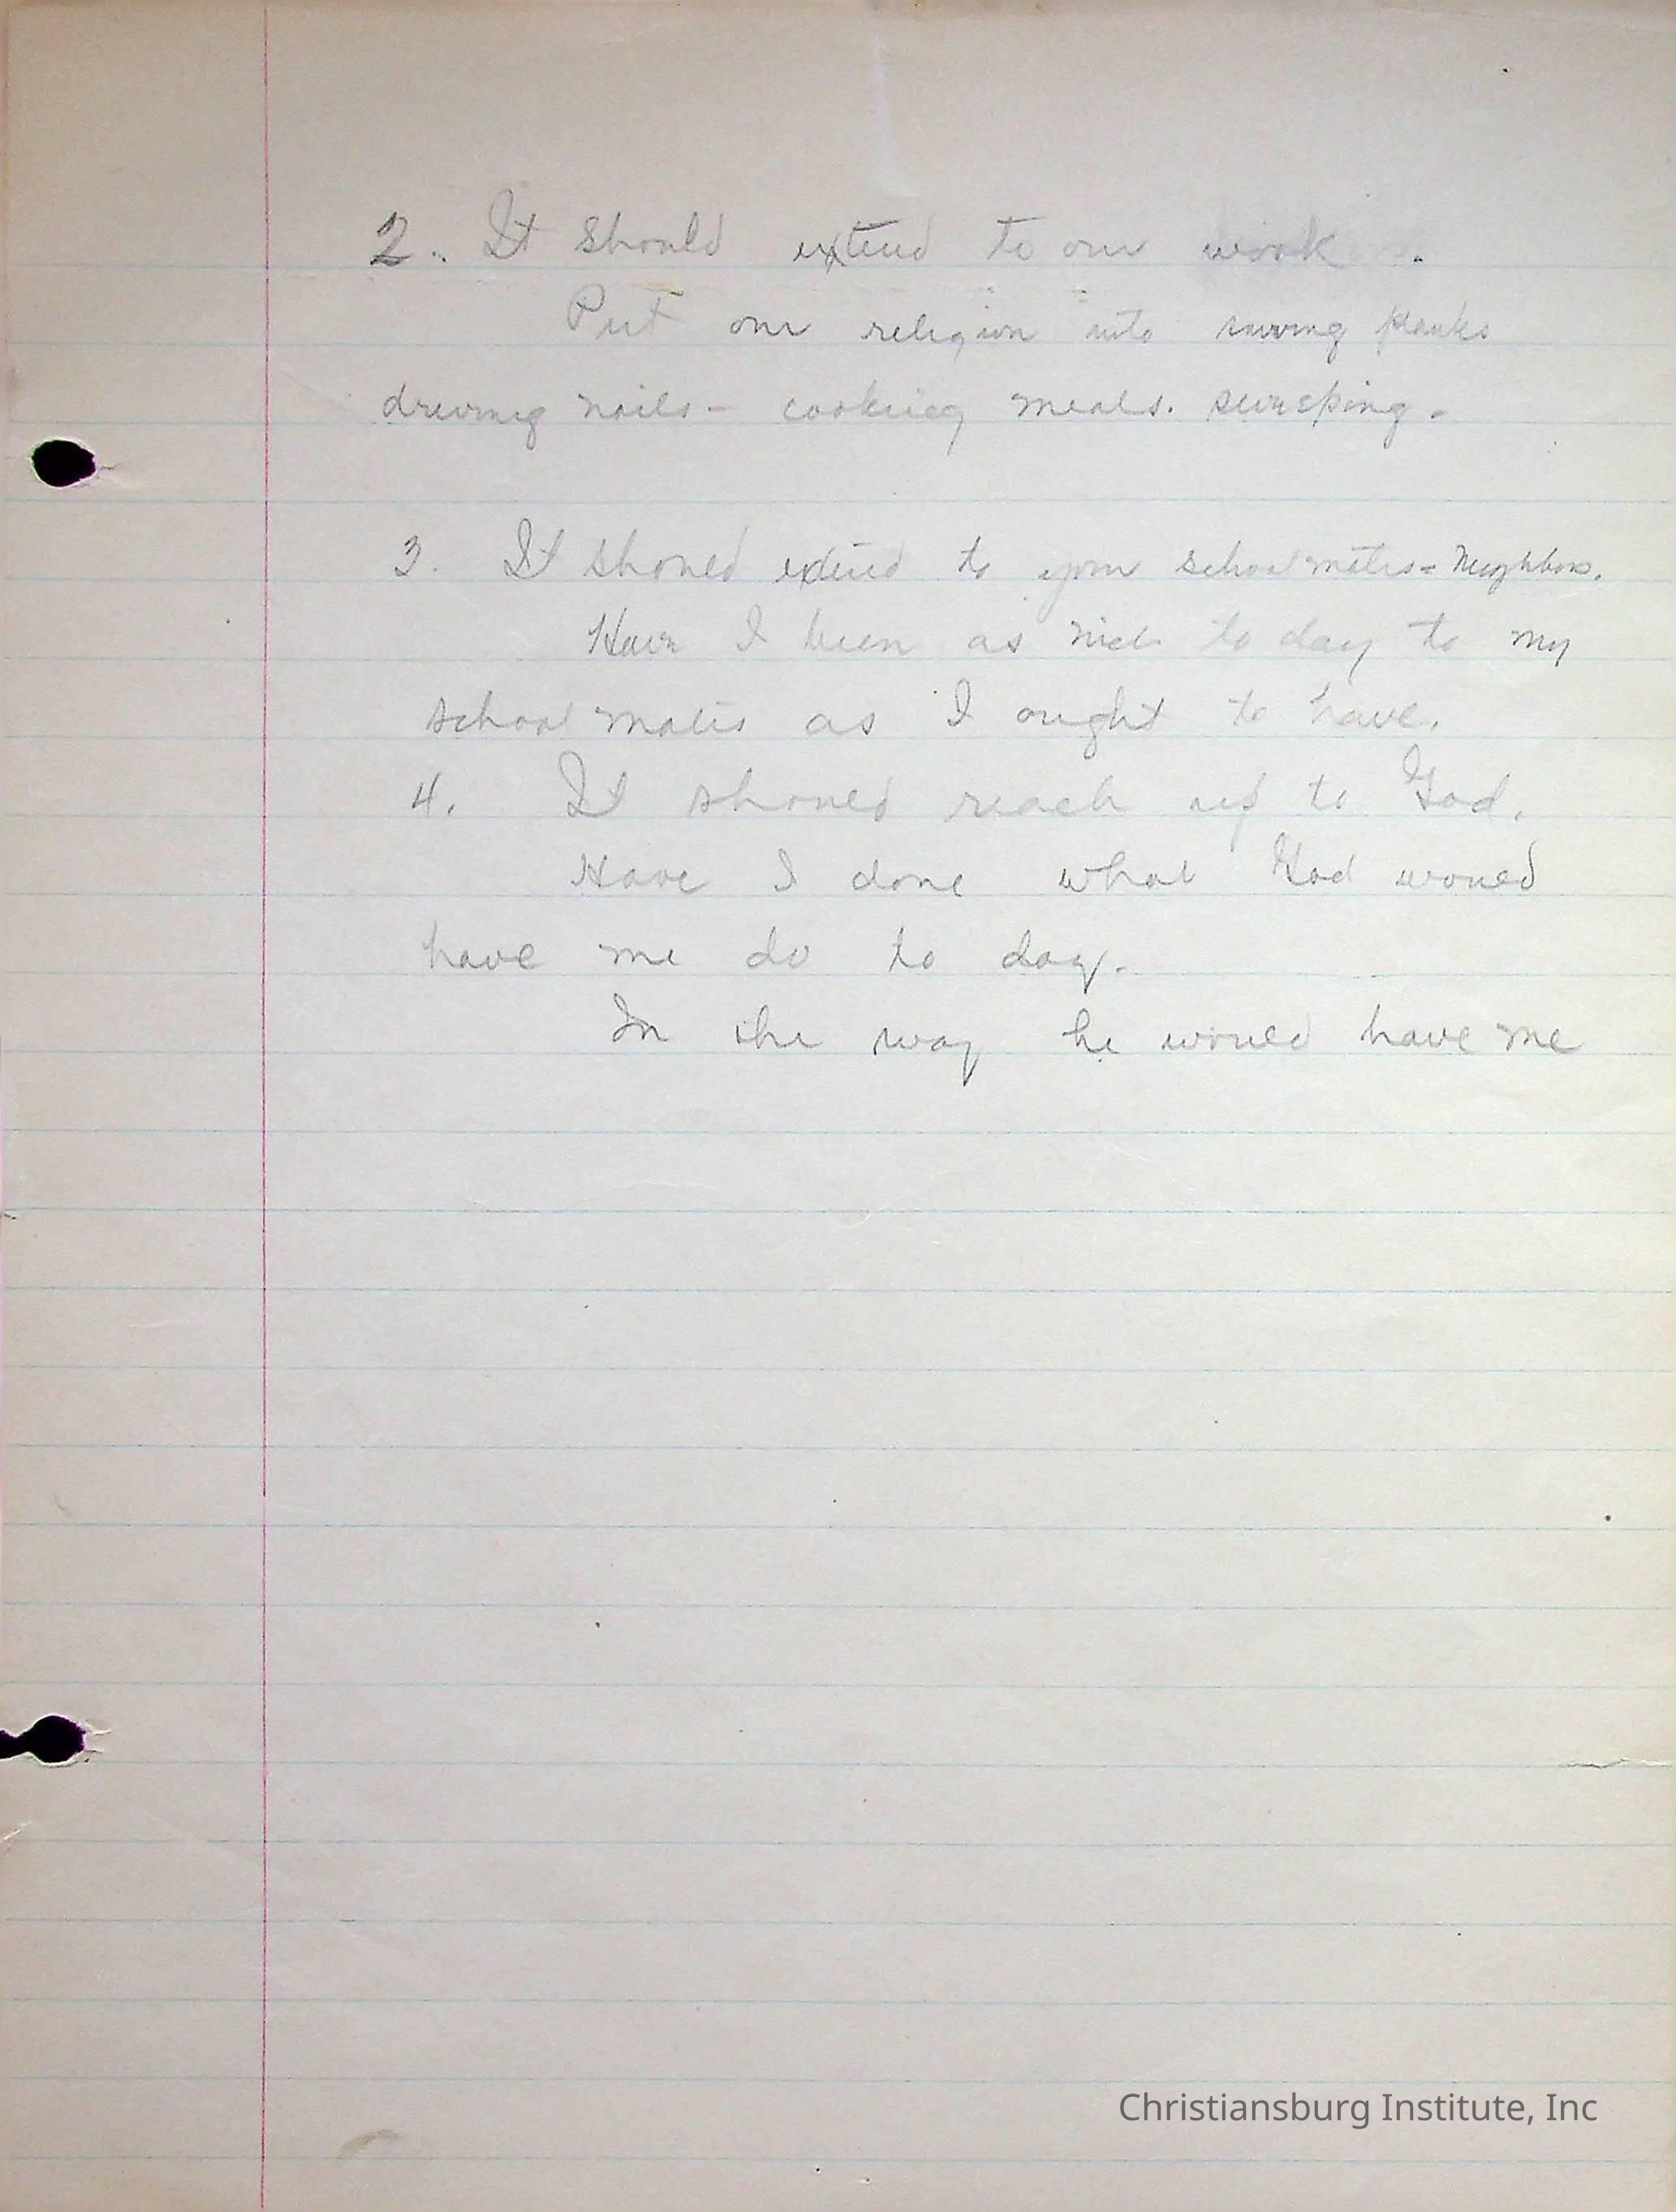 2. It should extend to our work.
Put our religion into sawing planks
driving nails - cooking meals. sweeping.
3. It should extend to your schoolmates - Neighbors.
Have I been as nice to day to my
schoolmates as I ought to have.
4. It should reach up to God.
Have I done what God would
have me do to day.
In the way he would have me
Christiansburg Institute, Inc